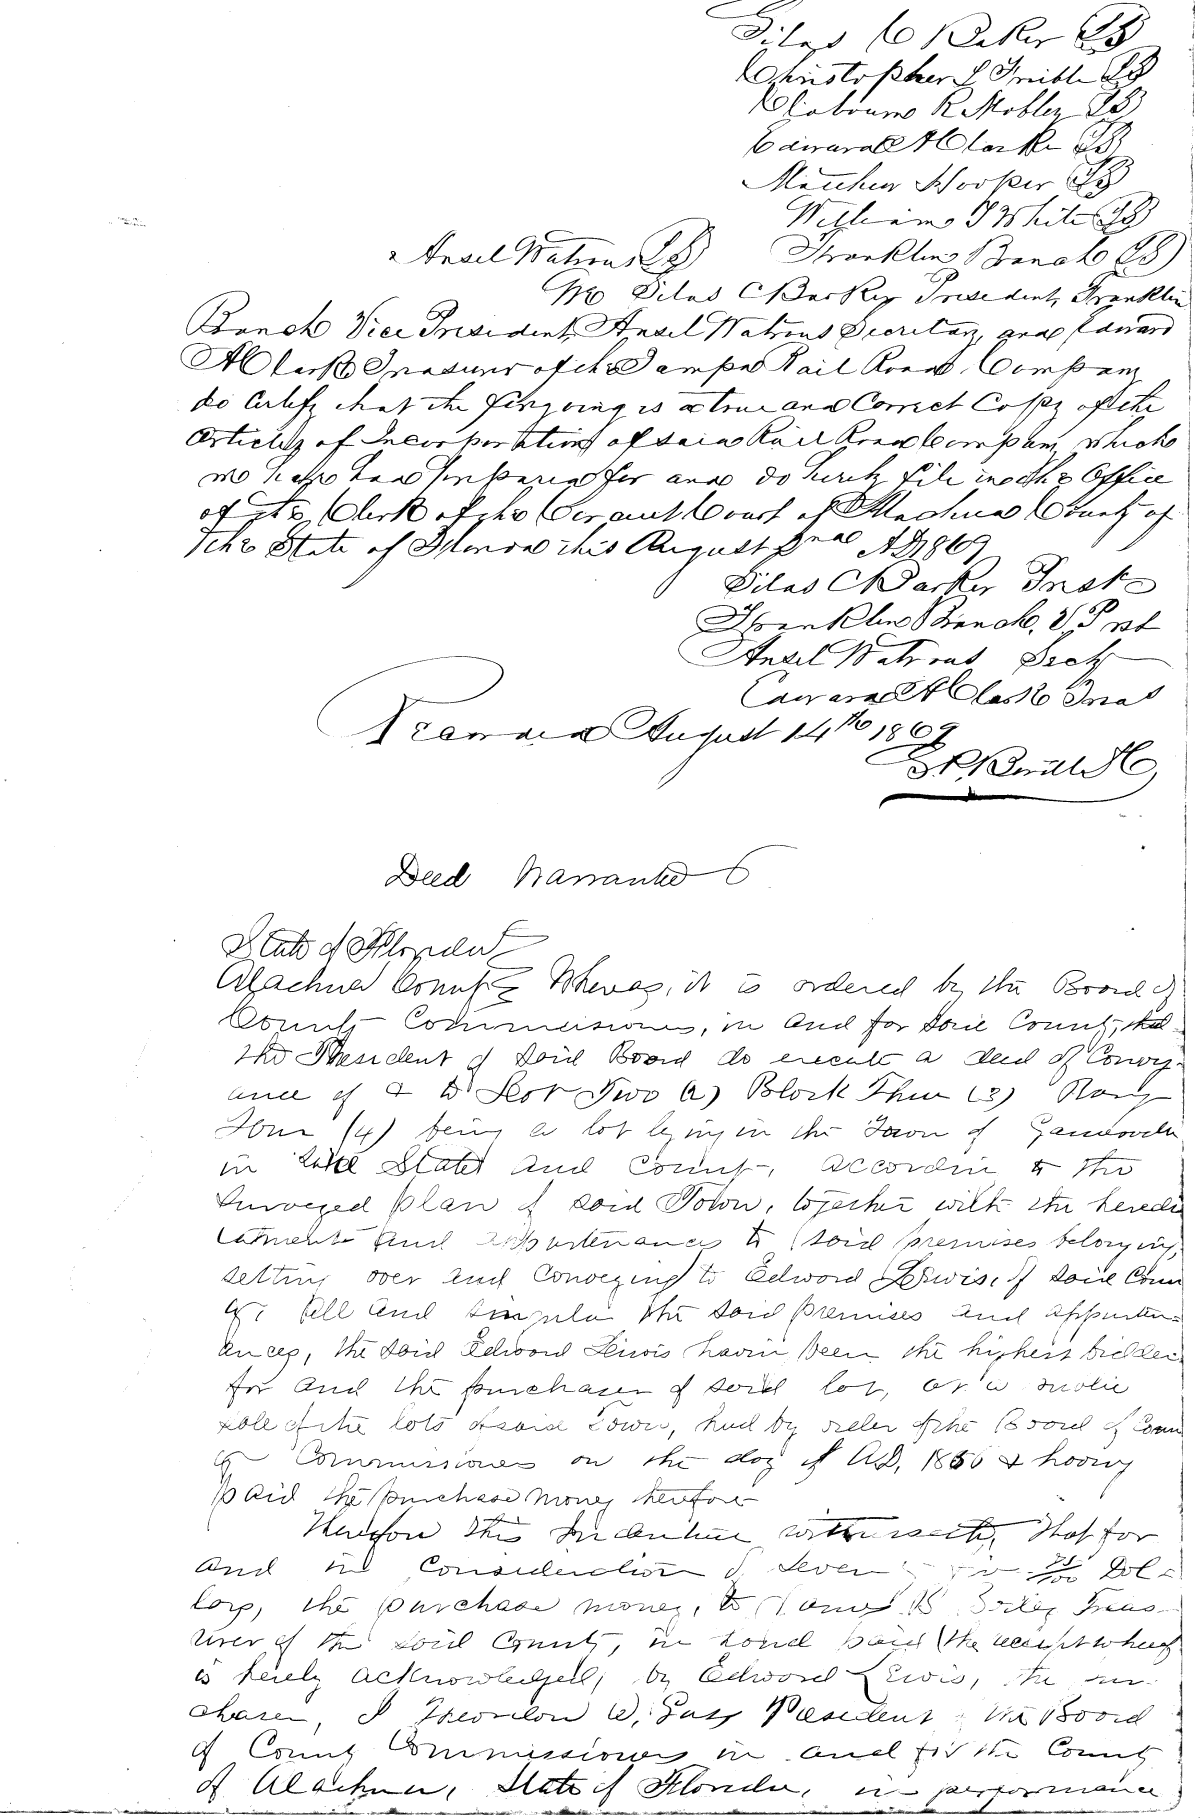 Silas C Barker LS
Christopher L Treible LS
Claborune R Mobley LS
Edward A Clark LS
Matthew Hooker LS
William J White LS
Ansel Watrous LS Franklin Branch LS
We Silas C Barker President, Franklin
Branch Vice President, Ansel Watrous Secretary, and Edward
A Clark Treasurer of the Tampa Rail Road Company
do Certify that the foregoing is a true and Correct Coppy of the
Articles of Incorporation of said Rail Road Company which
we have had prepared for and do hereby file in the Office
of the Clerk of the Circuit Court of Alachua County of
the State of Florida this August 2nd AD 1869
Silas C Barker Prest
Franklin Branch, V. Prst
Ansel Watrous Secty
Edward A Clark Treas
Recorded August 14th 1869
Deed Warranted
State of Florida
Alachua County Whereas, it is ordered by the Board of
County Commissioners, in and for said County, that
the President of said Board do execute a deed of Convey-
ance of & to Lot Two (2) Block Three (3) Range
Four (4) being a lot lying in the Town of Gainesville
in said State and County, according to the
Surveyed plan of said Town, together with the heredi
taments and appurtenances to said premises belonging,
setting over and conveying to Edward Lewis, of said Coun
ty, all and singular the said premises and appurten-
ances, the said Edward Lewis having been the highest bidder
for and the purchaser of said lot, at a public
sale of the lots of said Town, had by order of the Board of Coun
ty Commissioners on the day of A.D. 1856 & having
paid the purchase money therefor
Therefore this Indenture witnesseth, that for
and in consideration of Seven 75/100 Dol-
lars, the purchase money, to James B. Treas
urer of the said County, in hand paid (the receipt whereof
is hereby acknowledged) by Edward Lewis, the pur-
chaser, I President of the Board
of County Commissioners in and for the County
of Alachua, State of Florida, in performance